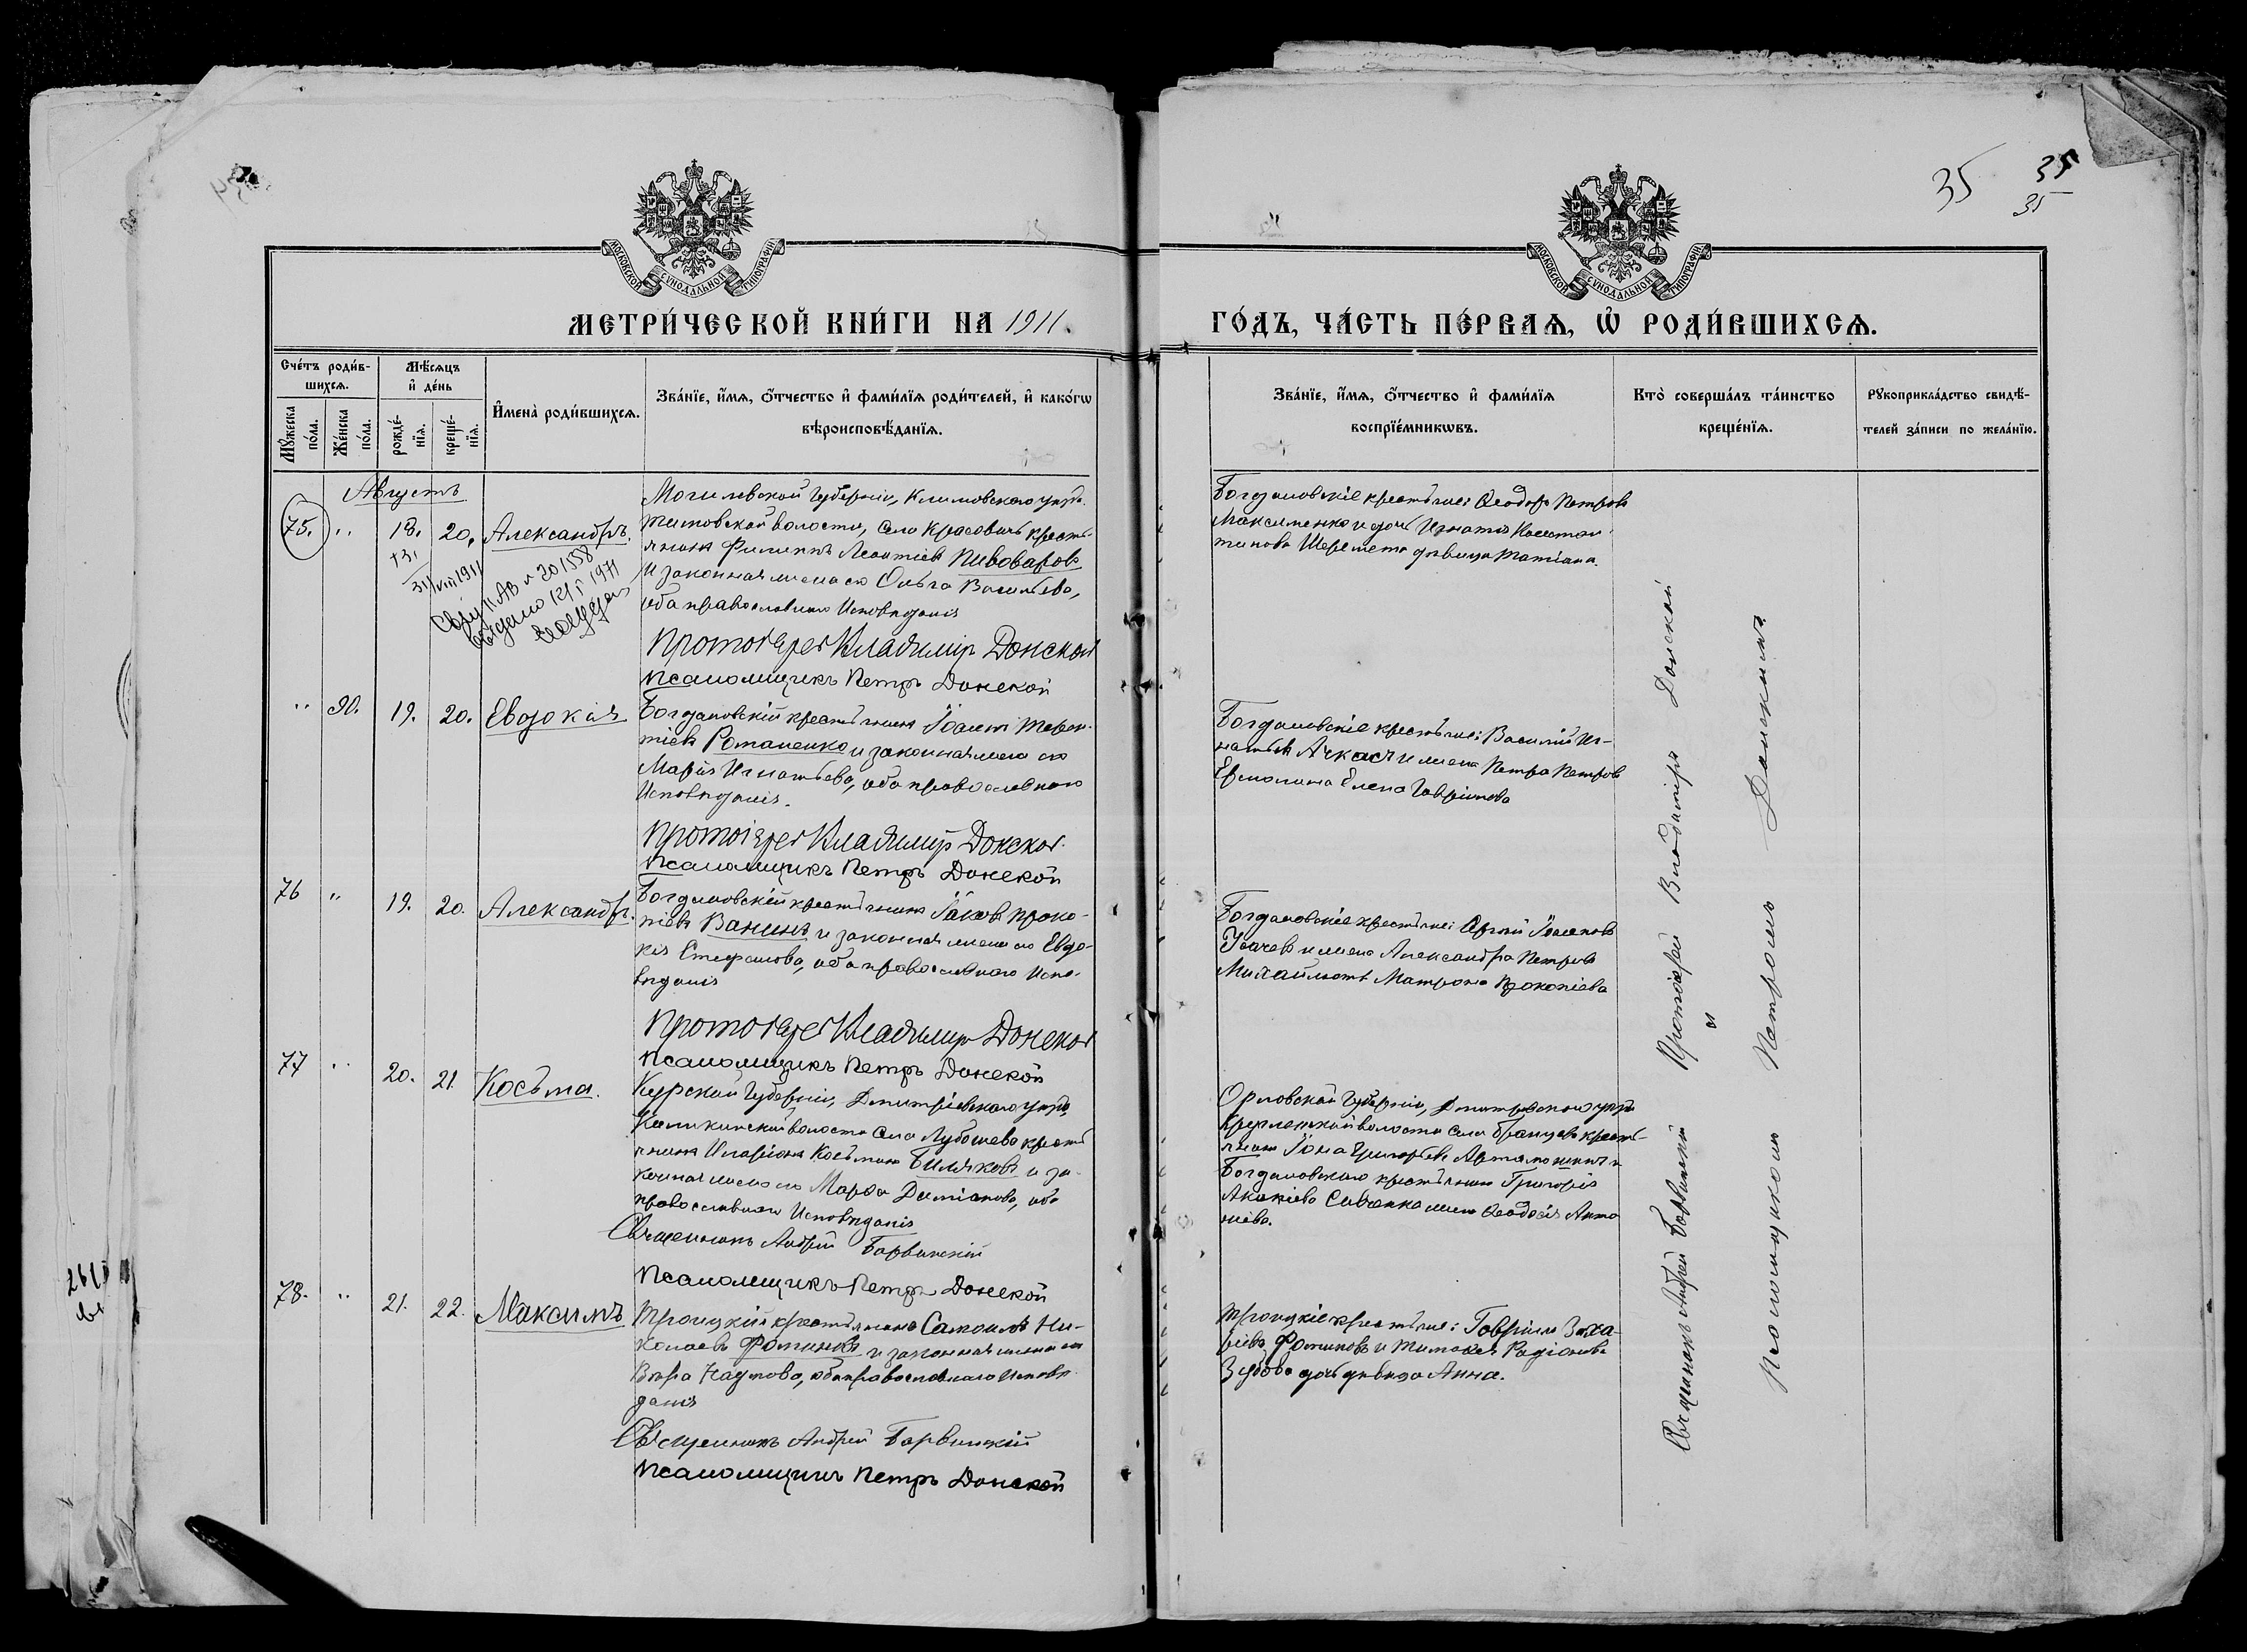 35 35
35
МОСКОВСКОЙ СѴНОДАЛЬНОЙ ТИПОГРАФІИ
МОСКОВСКОЙ СѴНОДАЛЬНОЙ ТИПОГРАФІИ
МЕТРИ́ЧЕСКОЙ КНИ́ГИ НА 1911.
ГО́ДЪ, ЧА́СТЬ ПЕ́РВАѦ, Ѡ҆ РОДИ́ВШИХСѦ.
Сче́тъ роди́в-
шихсѧ.
Мꙋ́жеска
по́ла.
Же́нска
по́ла.
Мѣ́сѧцъ
и҆ де́нь
рожде́-
нїѧ.
креще́-
нїѧ.
И҆мена̀ роди́вшихсѧ.
Зва́нїе, и҆́мѧ, ѻ҆́тчество и҆ фами́лїѧ роди́телей, и҆ како́гѡ
вѣроисповѣ́данїѧ.
Зва́нїе, и҆́мѧ, ѻ҆́тчество и҆ фами́лїѧ
воспрїе́мникѡвъ.
Кто̀ соверша́лъ та́инство
креще́нїѧ.
Рꙋкоприкла́дство свидѣ́-
телей за́писи по жела́нїю.
Августъ
75. " 18. 20. Александръ.
31/VIII 1911
II АВ № 201558
выдано 12/I 1971
Могилевской Губерніи, Климовскаго уѣзда
волости, села Красовичъ кресть-
янинъ Филиппъ Леонтіевъ Пивоваровъ
и законная жена его Ольга Васильева,
оба православнаго Исповѣданія
Протоіерей Владиміръ Донской
Псаломщикъ Петръ Донской
Богдановскіе крестьяне: Ѳеодоръ Петровъ
Максименко и дочь Игнатія Констан-
тинова Шеремета дѣвица Татіана.
" 90. 19. 20. Евдокія
Богдановскій крестьянинъ Іоаннъ Терен-
тіевъ Романенко и законная жена его
Марія Игнатьева, оба православнаго
Исповѣданія.
Протоіерей Владиміръ Донской
Псаломщикъ Петръ Донской
Богдановскіе крестьяне: Василій Иг-
натьевъ Ачкасъ и жена Петра Петрова
Ермолина Елена Гавріилова
76 " 19. 20. Александръ.
Богдановскій крестьянинъ Іаковъ Проко-
піевъ Ванинъ и законная жена его Евдо-
кія Стефанова, оба православнаго Испо-
вѣданія
Протоіерей Владиміръ Донской
Псаломщикъ Петръ Донской
Богдановскіе крестьяне: Сергій Іоанновъ
Усачевъ и жена Александра Петрова
Матрона Прокопіева
77 " 20. 21. Косьма.
Курской Губерніи, Дмитріевскаго уѣзда,
волости села Лубошева кресть-
янинъ Иларіонъ Косьминъ Биляковъ и за-
конная жена его Марѳа Даміанова, оба
православнаго Исповѣданія
Священникъ Андрей Барвинскій
Псаломщикъ Петръ Донской
Орловской Губерніи, Дмитровскаго уѣзда
волости села кресть-
янинъ Іона Григорьевъ Артамошинъ и
Богдановскаго крестьянина Григорія
Акакіева Савченка жена Ѳеодосія Анто-
ніева.
78. " 21. 22. Максимъ
Троицкій крестьянинъ Самоилъ Ни-
колаевъ Фоминовъ и законная жена его
Вѣра Наумова, оба православнаго Исповѣ-
данія
Священникъ Андрей Барвинскій
Псаломщикъ Петръ Донской
Троицкіе крестьяне: Гавріилъ Заха-
ріевъ Фоминовъ и Тимоѳея Родіонова
Зубова дочь дѣвица Анна.
Протоіерей Владиміръ Донской
и
Священникъ Андрей Барвинскій
Псаломщикомъ Петромъ Донскимъ.